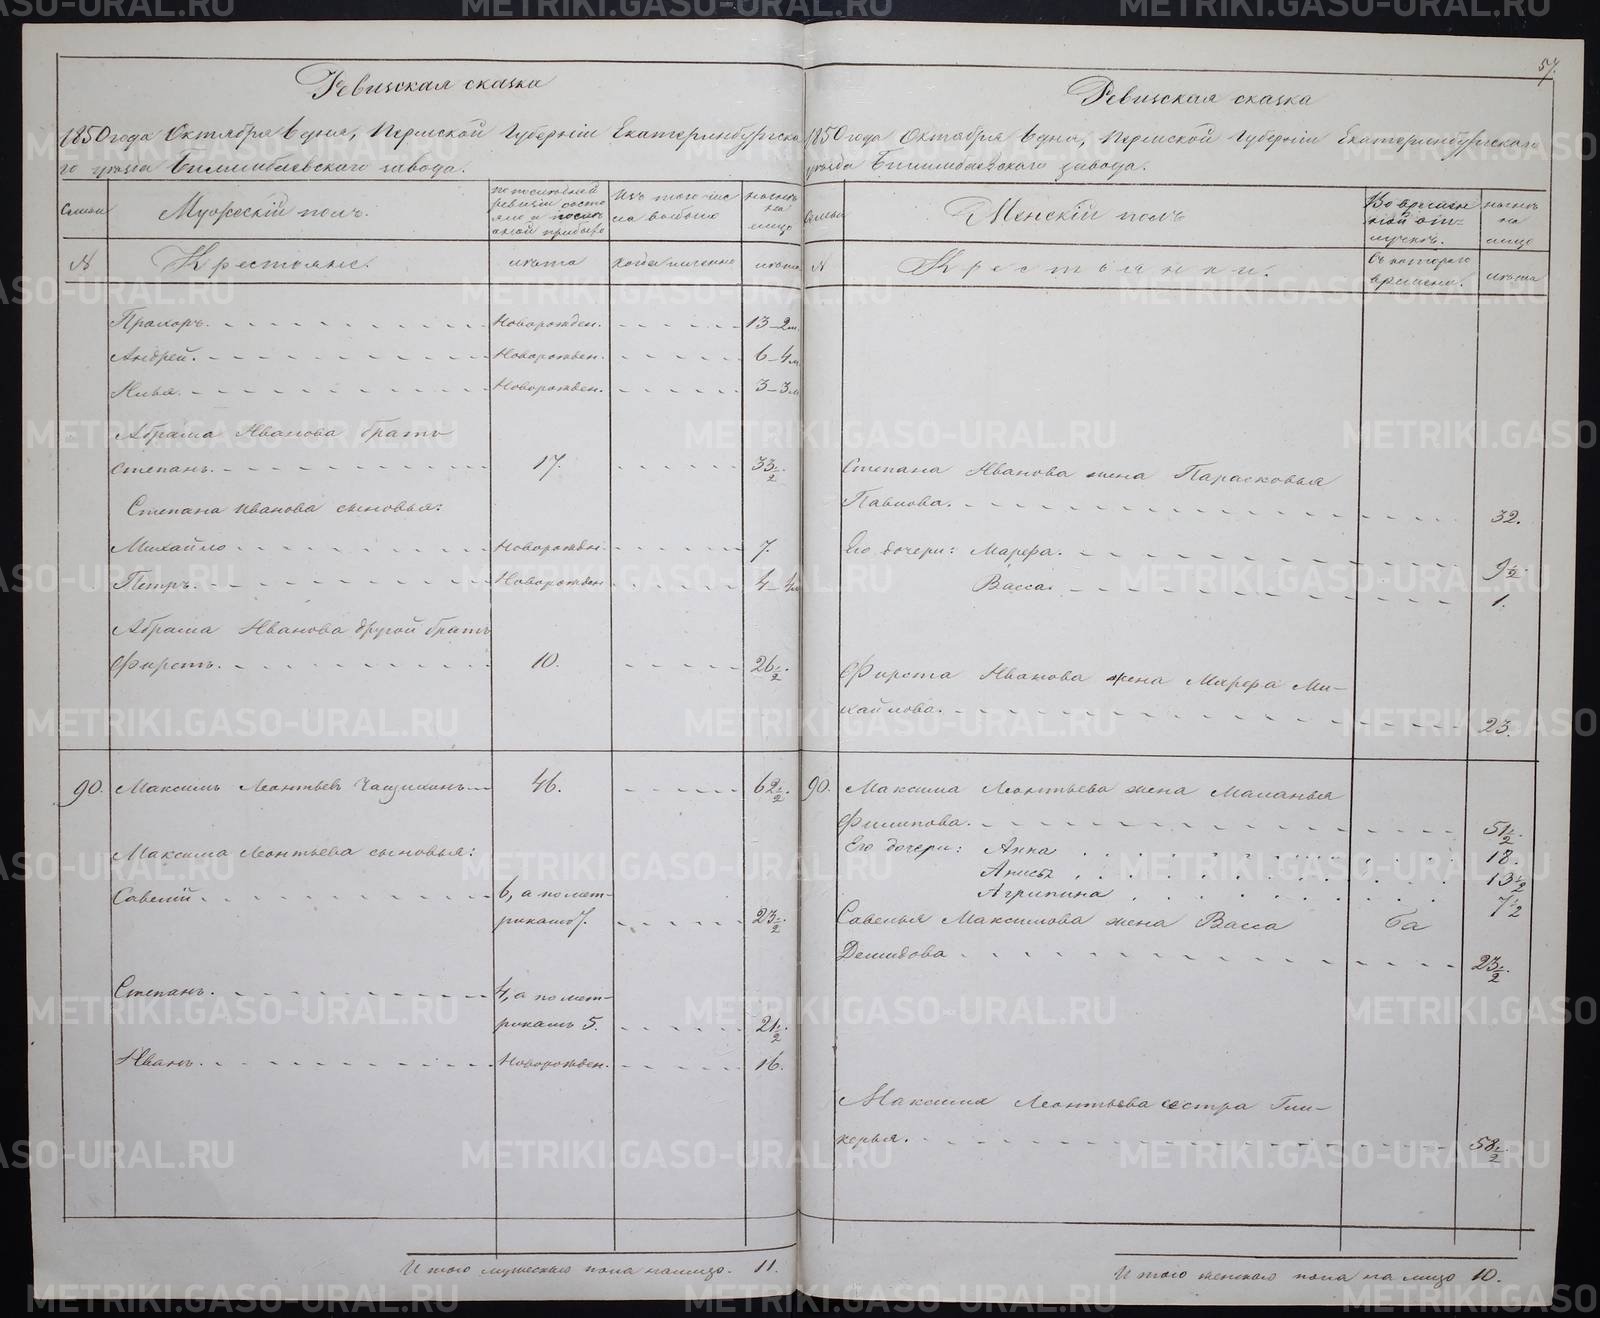 57.
Ревизская сказка
1850 года Октября 6 дня, Пермской Губерніи Екатеринбургска
го уѣзда Билимбаевского завода.
Семьи
Мужескій полъ.
по послѣдней ревизіи состояло и послѣ оной прибыло
Изъ того числа выбыло
нынѣ на лицо
№
Крестьяне.
лѣта
когда именно
лѣта
Прохоръ. Новорожден. 13-2м.
Андрей. Новорожден. 6-4м
Илья. Новорожден. 3-3м
Абрама Иванова братъ
Степанъ. 17. 33 1/2.
Степана Иванова сыновья:
Михайло Новорожден. 7.
Петръ. Новорожден 4-4м
Абрама Иванова другой братъ
Фирстъ. 10. 26 1/2.
90. Максимъ Леонтьевъ Чащихинъ 46. 62 1/2.
Максима Леонтьева сыновья:
Савелій. 6, а по мет-
рикамъ 7. 23 1/2.
Степанъ. 4, а по мет-
рикамъ 5. 21 1/2.
Иванъ. Новорожден. 16.
Итого мужеского пола налицо. 11.
Ревизская сказка
1850 года Октября 6 дня, Пермской Губерніи Екатеринбургского
уѣзда Билимбаевского завода.
Семьи
Женскій полъ
Во времен-
ной от-
лучкѣ.
нынѣ
на
лицо
№
Крестьянки.
Съ котораго
времени.
лѣта
Степана Иванова жена Парасковья
Павлова. 32.
Его дочери: Марефа. 9 1/2.
Васса. 1.
Фирста Иванова жена Марефа Ми-
хайлова. 23.
90. Максима Леонтьева жена Маланья
Филипова. 51 1/2.
Его дочери: Анна 18.
Анисья 13 1/2
Агрипина 7 1/2
Савелья Максимова жена Васса
Демидова 23 1/2.
Максима Леонтьева сестра Гли-
керья. 58 1/2
Итого женского пола на лицо 10.
METRIKI.GASO-URAL.RU